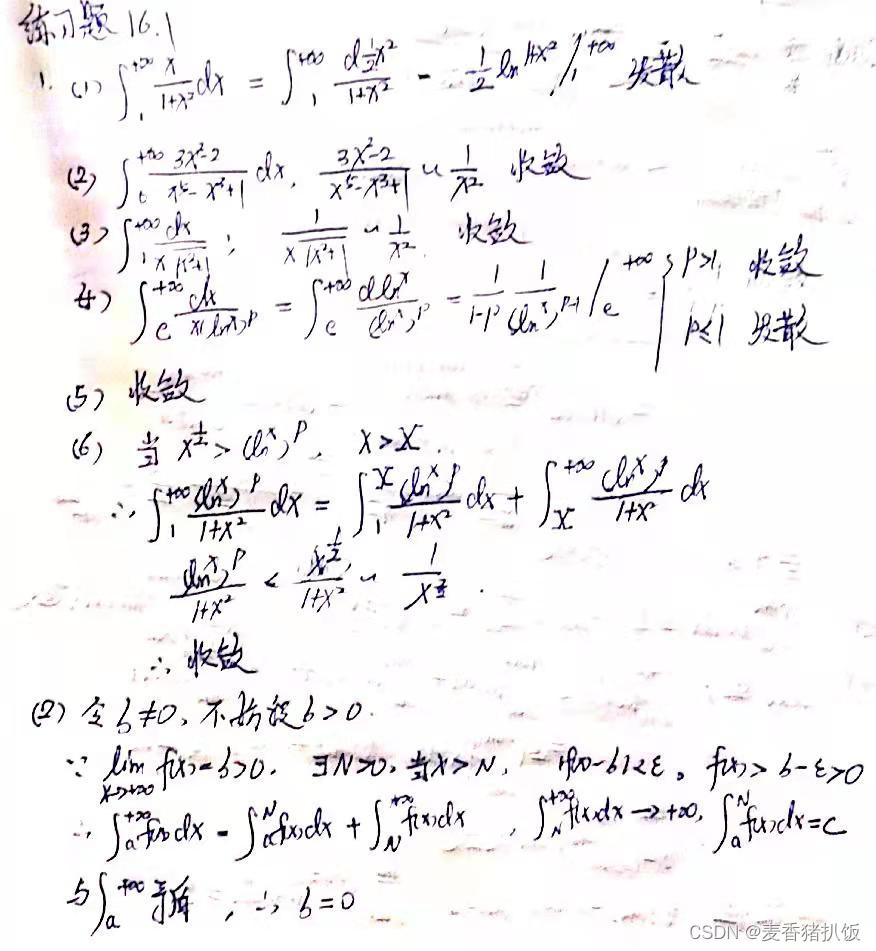 练习题 16.1
1. (1) ∫₁^{+∞} x/(1+x²) dx = ∫₁^{+∞} d½x²/(1+x²) = ½ ln^{1+x²} |₁^{+∞} 发散
(2) ∫₀^{+∞} (3x²-2)/(x⁵-x³+1) dx, (3x²-2)/(x⁵-x³+1) ~ 1/x² 收敛
(3) ∫₁^{+∞} dx/(x√(x²+1)); 1/(x√(x²+1)) ~ 1/x² 收敛
4) ∫_e^{+∞} dx/(x(ln^x)^p) = ∫_e^{+∞} dln^x/(ln^x)^p = 1/(1-p) 1/(ln^x)^{p-1} |_e^{+∞} { p>1, 收敛
p≤1 发散
(5) 收敛
(6) 当 x^{1/2} > (ln^x)^p, x>X.
∴ ∫₁^{+∞} (ln^x)^p/(1+x²) dx = ∫₁^X (ln^x)^p/(1+x²) dx + ∫_X^{+∞} (ln^x)^p/(1+x²) dx
(ln^x)^p/(1+x²) < x^{1/2}/(1+x²) ~ 1/x^{3/2}.
∴ 收敛
(2) 令 b≠0, 不妨设 b>0.
∵ lim_{x→+∞} f(x)=b>0. ∃N>0, 当x>N, |f(x)-b|<ε. f(x)>b-ε>0
∴ ∫_a^{+∞} f(x)dx = ∫_a^N f(x)dx + ∫_N^{+∞} f(x)dx, ∫_N^{+∞} f(x)dx→+∞, ∫_a^N f(x)dx=C
与∫_a^{+∞} 矛盾, ∴ b=0
CSDN @麦香猪扒饭